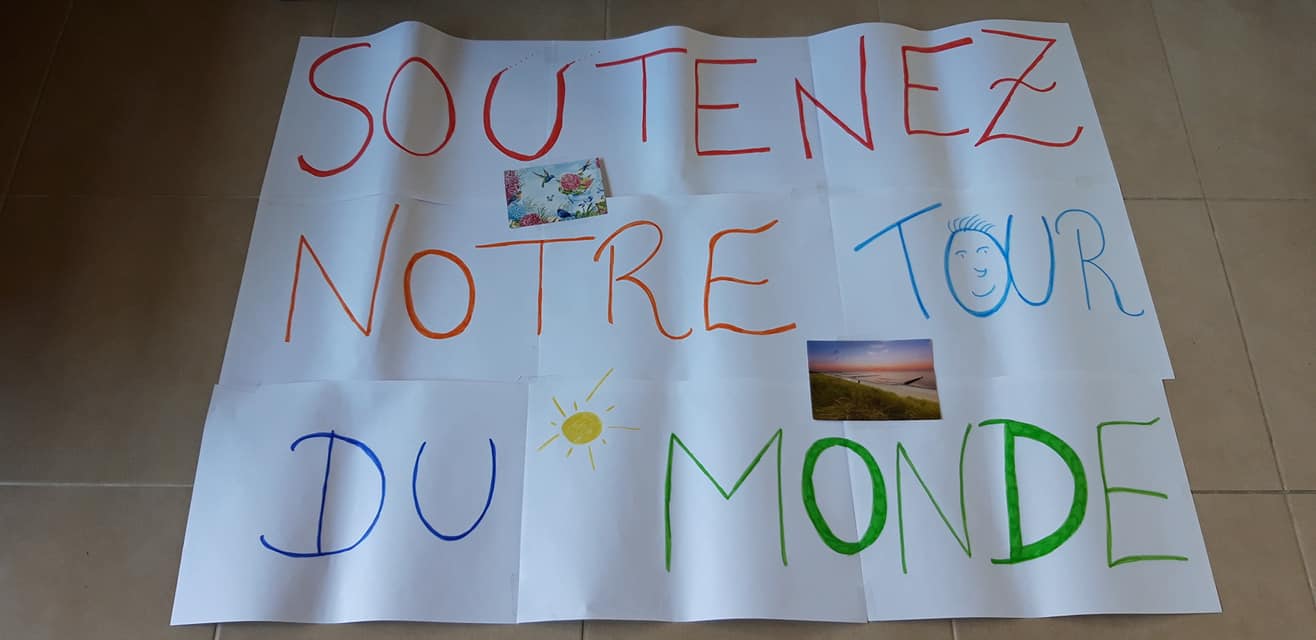 SOUTENEZ
NOTRE TOUR
DU MONDE